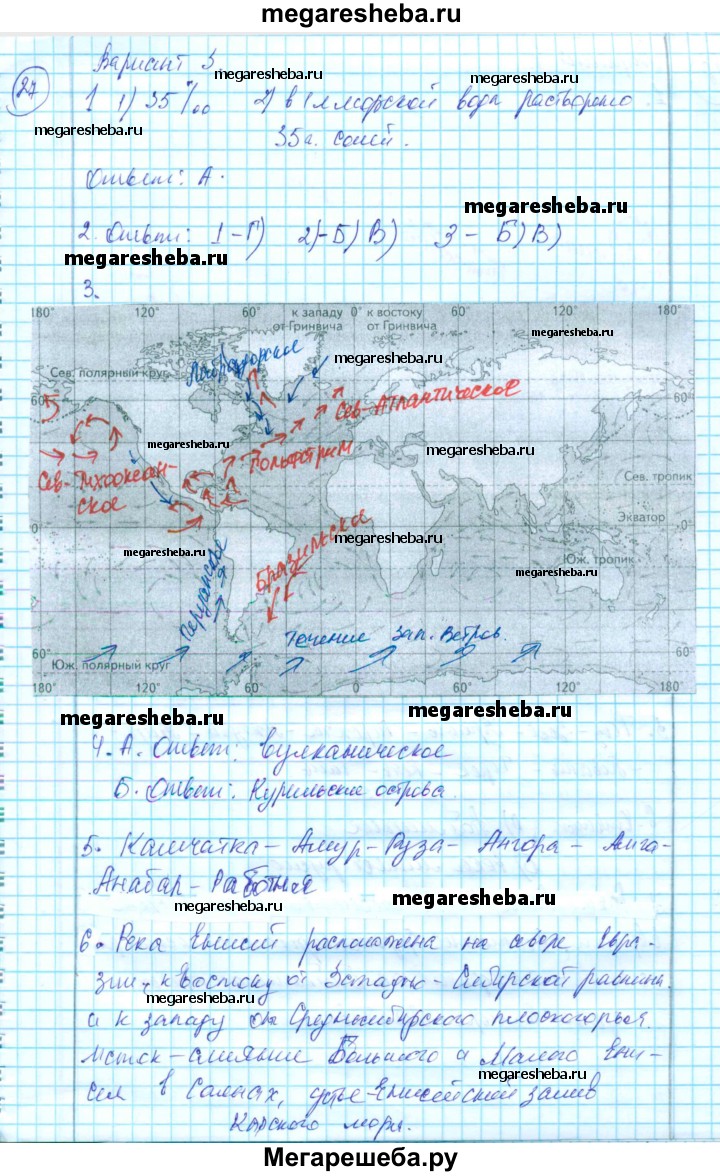 megaresheba.ru
Вариант 3
megaresheba.ru
27
1. 1) 35 ‰ 2) в 1 л морской воды растворено
megaresheba.ru
35 г. солей.
Ответ: А.
megaresheba.ru
2. Ответ: 1-Г) 2)-Б) В) 3 - Б) В)
megaresheba.ru
3.
180° 120° 60° к западу 0° к востоку 60° 120° 180°
от Гринвича от Гринвича
megaresheba.ru
Лабрадорское
megaresheba.ru
Сев. полярный круг
60° 60°
Сев-Атлантическое
megaresheba.ru
Гольфстрим
megaresheba.ru
Сев-Тихоокеан-
ское
Сев. тропик
Экватор
0° 0°
megaresheba.ru
megaresheba.ru
Бразильское
Юж. тропик
megaresheba.ru
Перуанское
Течение зап. Ветров.
60° Юж. полярный круг 60°
180° 120° 60° 0° 60° 120° 180°
megaresheba.ru
megaresheba.ru
4. А. Ответ: вулканическое
Б. Ответ: Курильские острова.
5. Камчатка - Амур - Руза - Ангора - Анга-
Анабар - Работки
megaresheba.ru
megaresheba.ru
6. Река Енисей расположена на севере Евра-
зии, к востоку от Западно-Сибирской равнины
megaresheba.ru
а к западу от Среднесибирского плоскогорья.
Исток - слияние Большого и Малого Ени-
megaresheba.ru
сея в Саянах, устье - Енисейский залив
Карского моря.
Мегарешеба.ру